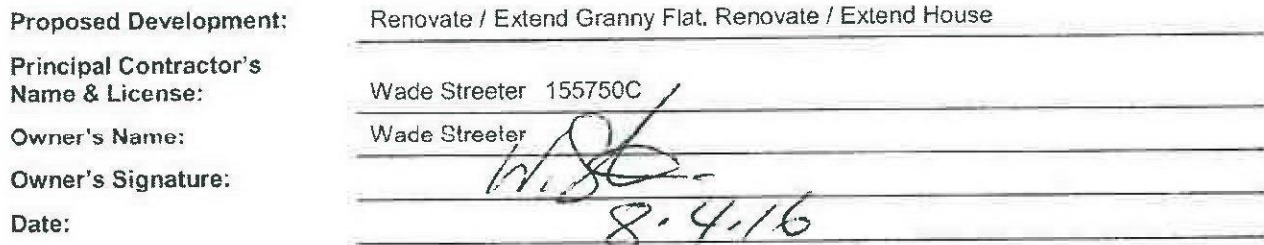 Proposed Development: Renovate / Extend Granny Flat. Renovate / Extend House
Principal Contractor's
Name & License: Wade Streeter 155750C
Owner's Name: Wade Streeter
Owner's Signature: W. St
Date: 8.4.16